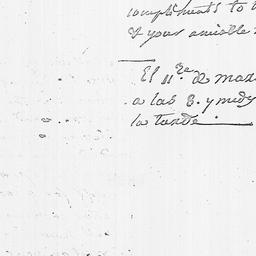 compliments to
& your amiable
El 11.^ra de mar
a las 8. y med
la tarde.